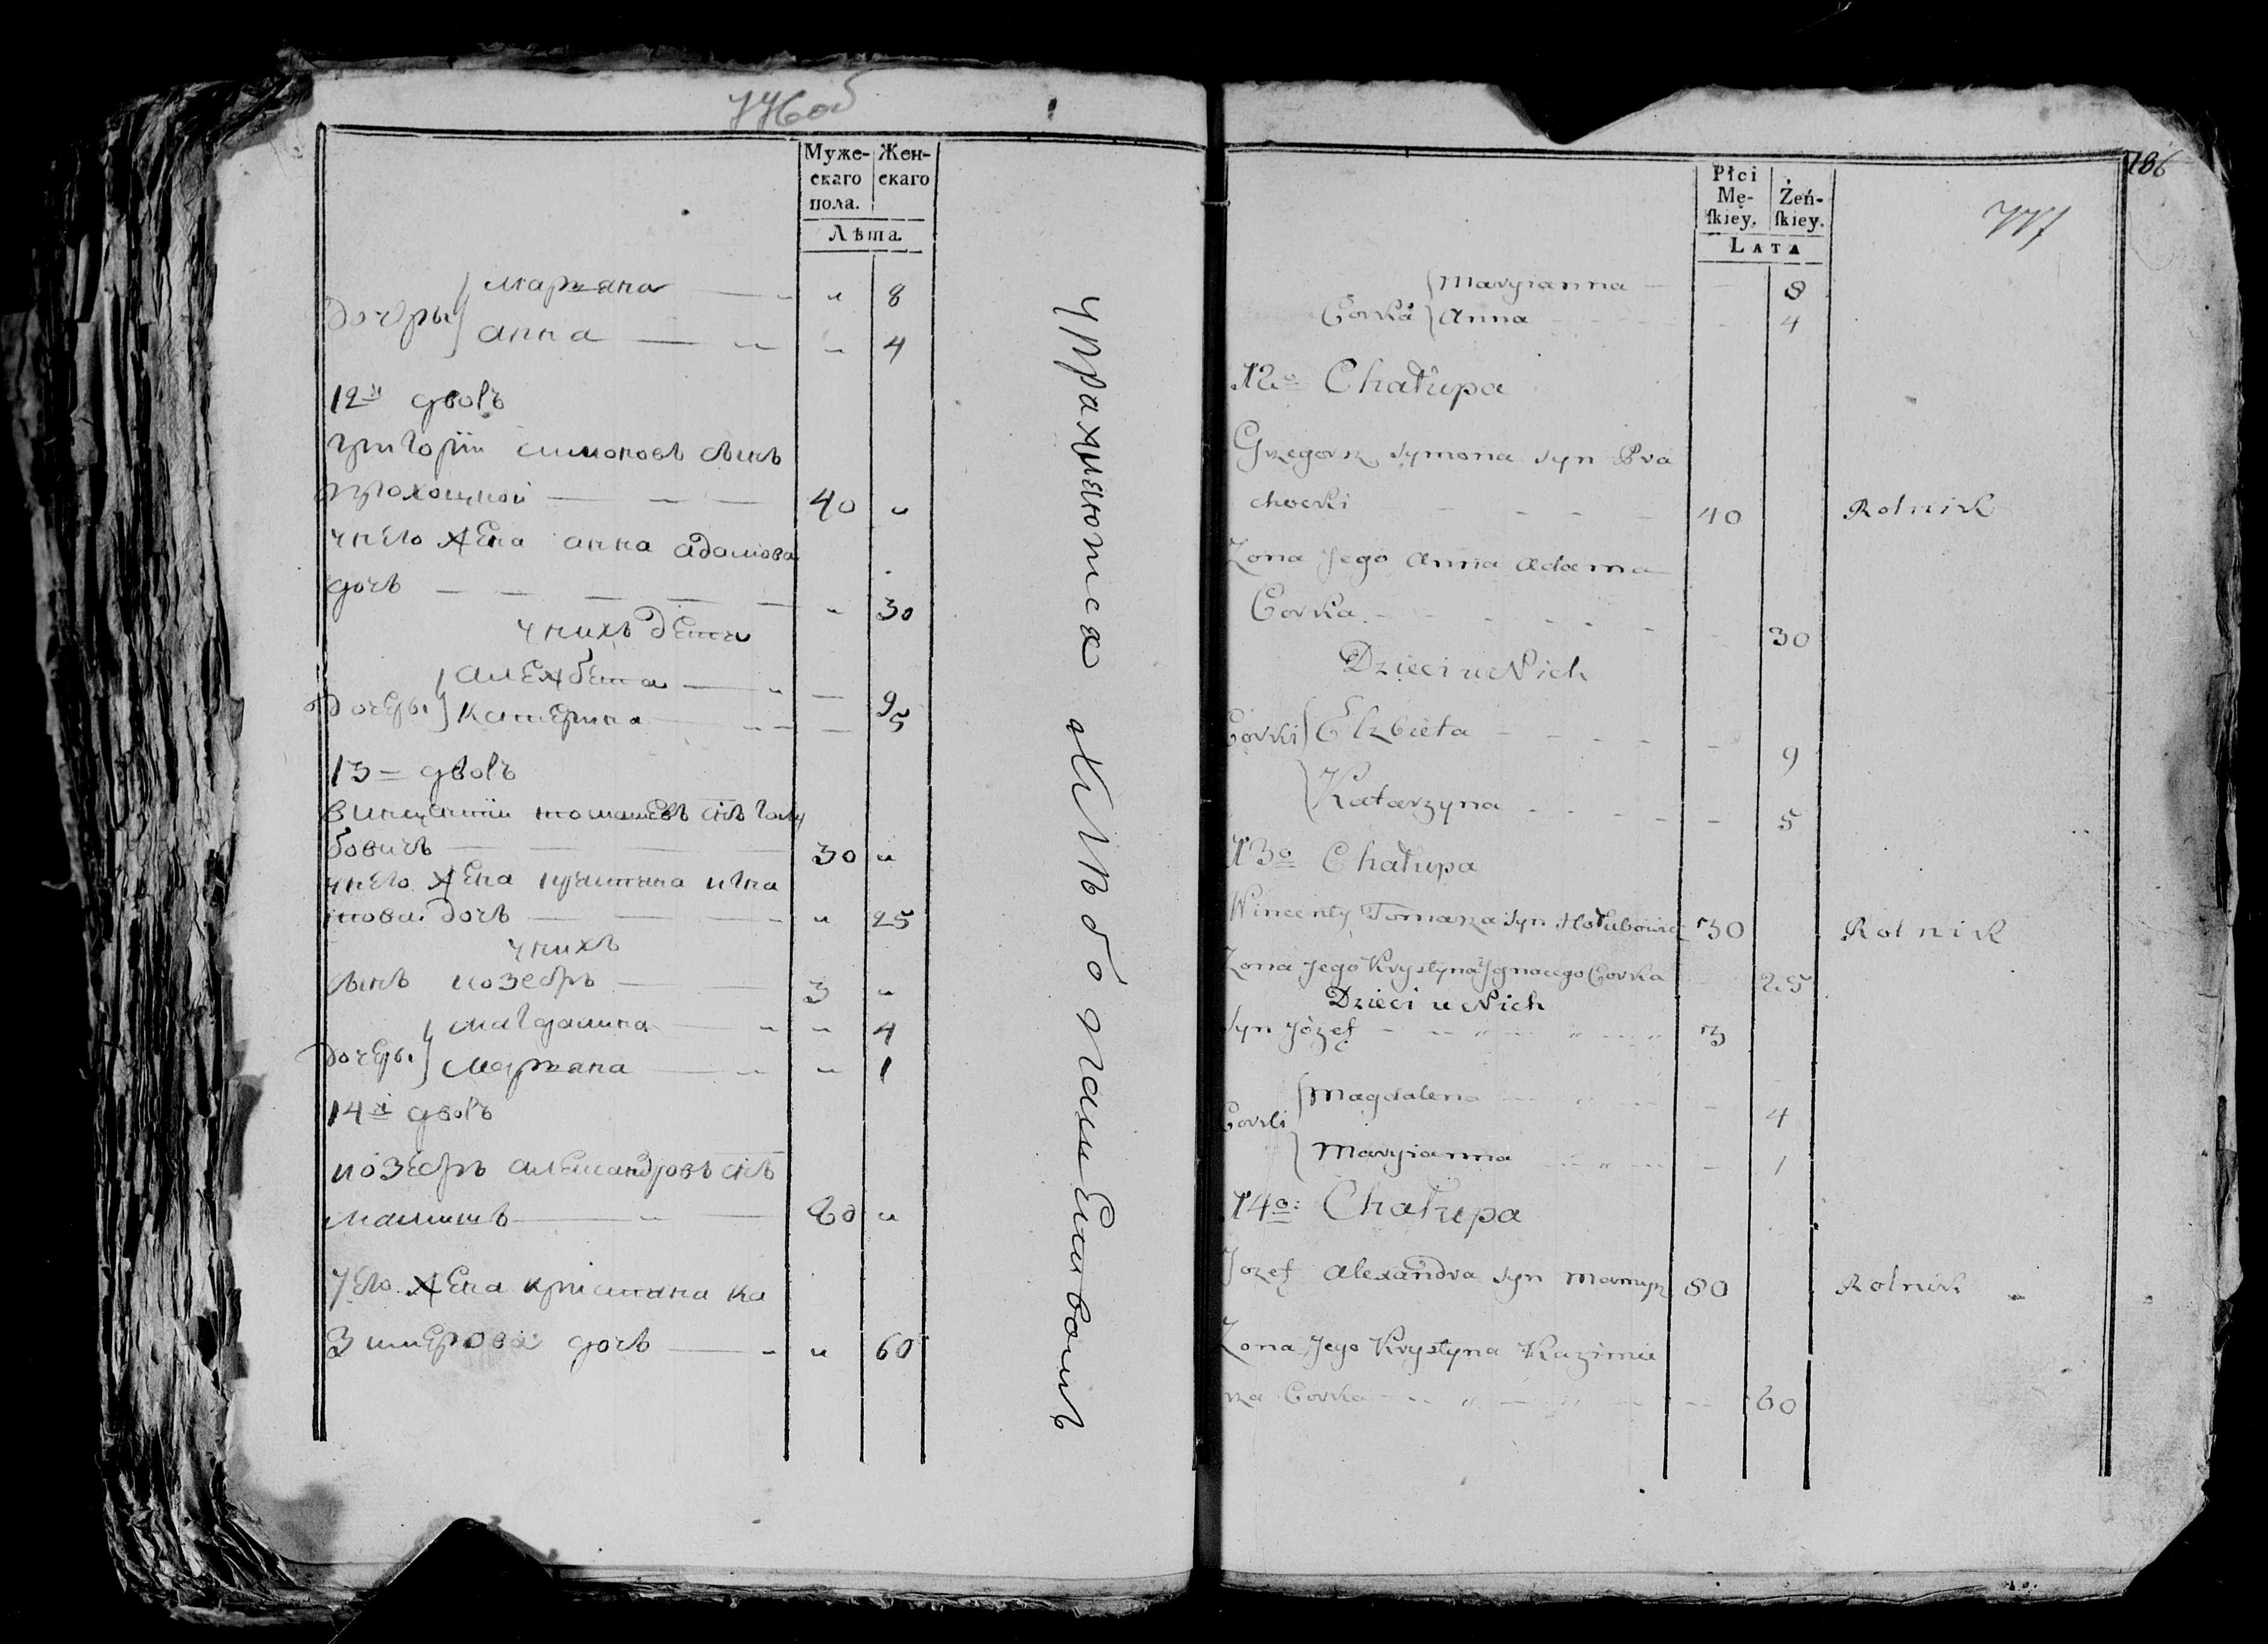 776об
Муже-
скаго
пола.
Жен-
скаго
Лѣта.
дочеры
Марыана — „ 8
анна — „ 4
12й дворъ
григорій симоновъ сынъ
прохоцкой — 40 „
унего жена анна адамова
дочь — „ 30
унихъ дети
дочеры
алежбета — 9
катерина — 5
13 дворъ
винцентій томашевъ снъ Голу
бовичъ — 30 „
унего жена крыстына игна
това дочь — „ 25
унихъ
сынъ иозефъ — 3 „
дочеры
магдалина — „ 4
Марыана — „ 1
14й дворъ
иозефъ александровъ снъ
— 80 „
унего жена крыстына ка
зимерова дочь — „ 60
упражняются хлѣбопашествомъ
186
777
Płci
Mę-
skiey.
Żeń-
skiey.
LATA
Corka
Maryianna — 8
Anna — 4
12o Chałupa
Grzegorz Symona syn Pra
chocki — 40 Rolnik
Zona Jego Anna Adama
Corka — 30
Dzieci u Nich
Corki
Elzbieta — 9
Katarzyna — 5
13o Chałupa
Wincenty Tomasza syn Hołubowicz 30 Rolnik
Zona Jego Krystyna Ignacego Corka 25
Dzieci u Nich
Syn Józef — 3
Corki
Magdalena — 4
Maryianna — 1
14o: Chałupa
Jozef Alexandra syn 80 Rolnik
Zona Jego Krystyna Kazimie
rza Corka — 60